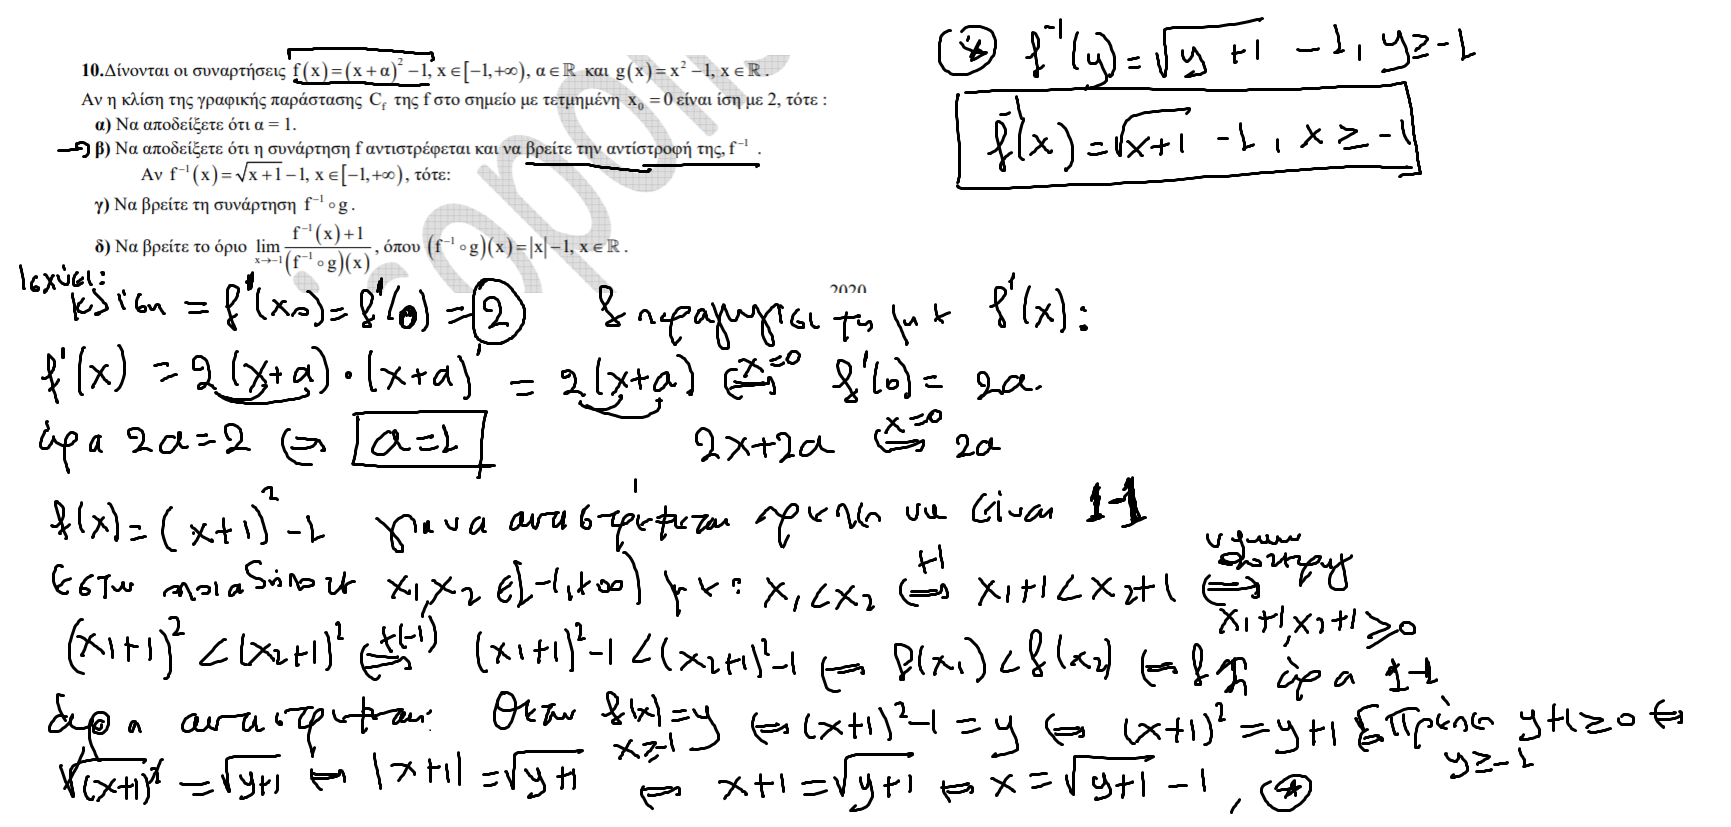 10.Δίνονται οι συναρτήσεις f(x)=(x+α)²−1, x∈[−1,+∞), α∈ℝ και g(x)=x²−1, x∈ℝ.
Αν η κλίση της γραφικής παράστασης C_f της f στο σημείο με τετμημένη x₀=0 είναι ίση με 2, τότε :
α) Να αποδείξετε ότι α = 1.
β) Να αποδείξετε ότι η συνάρτηση f αντιστρέφεται και να βρείτε την αντίστροφή της, f⁻¹ .
Αν f⁻¹(x)=√(x+1)−1, x∈[−1,+∞), τότε:
γ) Να βρείτε τη συνάρτηση f⁻¹∘g.
δ) Να βρείτε το όριο lim x→−1 (f⁻¹(x)+1)/((f⁻¹∘g)(x)), όπου (f⁻¹∘g)(x)=|x|−1, x∈ℝ.
2020
(*) f⁻¹(y)=√(y+1) −1, y≥−1
f⁻¹(x)=√(x+1) −1, x≥−1
Ισχύει:
κλίση = f'(x₀)=f'(0)=2 f παραγωγίσιμη με f'(x):
f'(x) = 2(x+α)·(x+α)' = 2(x+α) ⇔ x=0 f'(0)= 2α.
άρα 2α=2 ⇔ α=1 2x+2α ⇔ x=0 2α
f(x)=(x+1)²−1 για να αντιστρέφεται αρκεί να είναι 1-1
Εστω οποιαδήποτε x₁,x₂∈[−1,+∞) με: x₁<x₂ ⇔ +1 x₁+1<x₂+1 ⇔ x₁+1,x₂+1≥0
(x₁+1)²<(x₂+1)² ⇔ +(−1) (x₁+1)²−1<(x₂+1)²−1 ⇔ f(x₁)<f(x₂) ⇔ f άρα 1-1
άρα αντιστρέφεται. Θετω f(x)=y x≥−1 ⇔ (x+1)²−1=y ⇔ (x+1)²=y+1 Πρέπει y+1≥0 ⇔ y≥−1
√(x+1)² =√(y+1) ⇔ |x+1|=√(y+1) ⇔ x+1=√(y+1) ⇔ x=√(y+1) −1, (*)